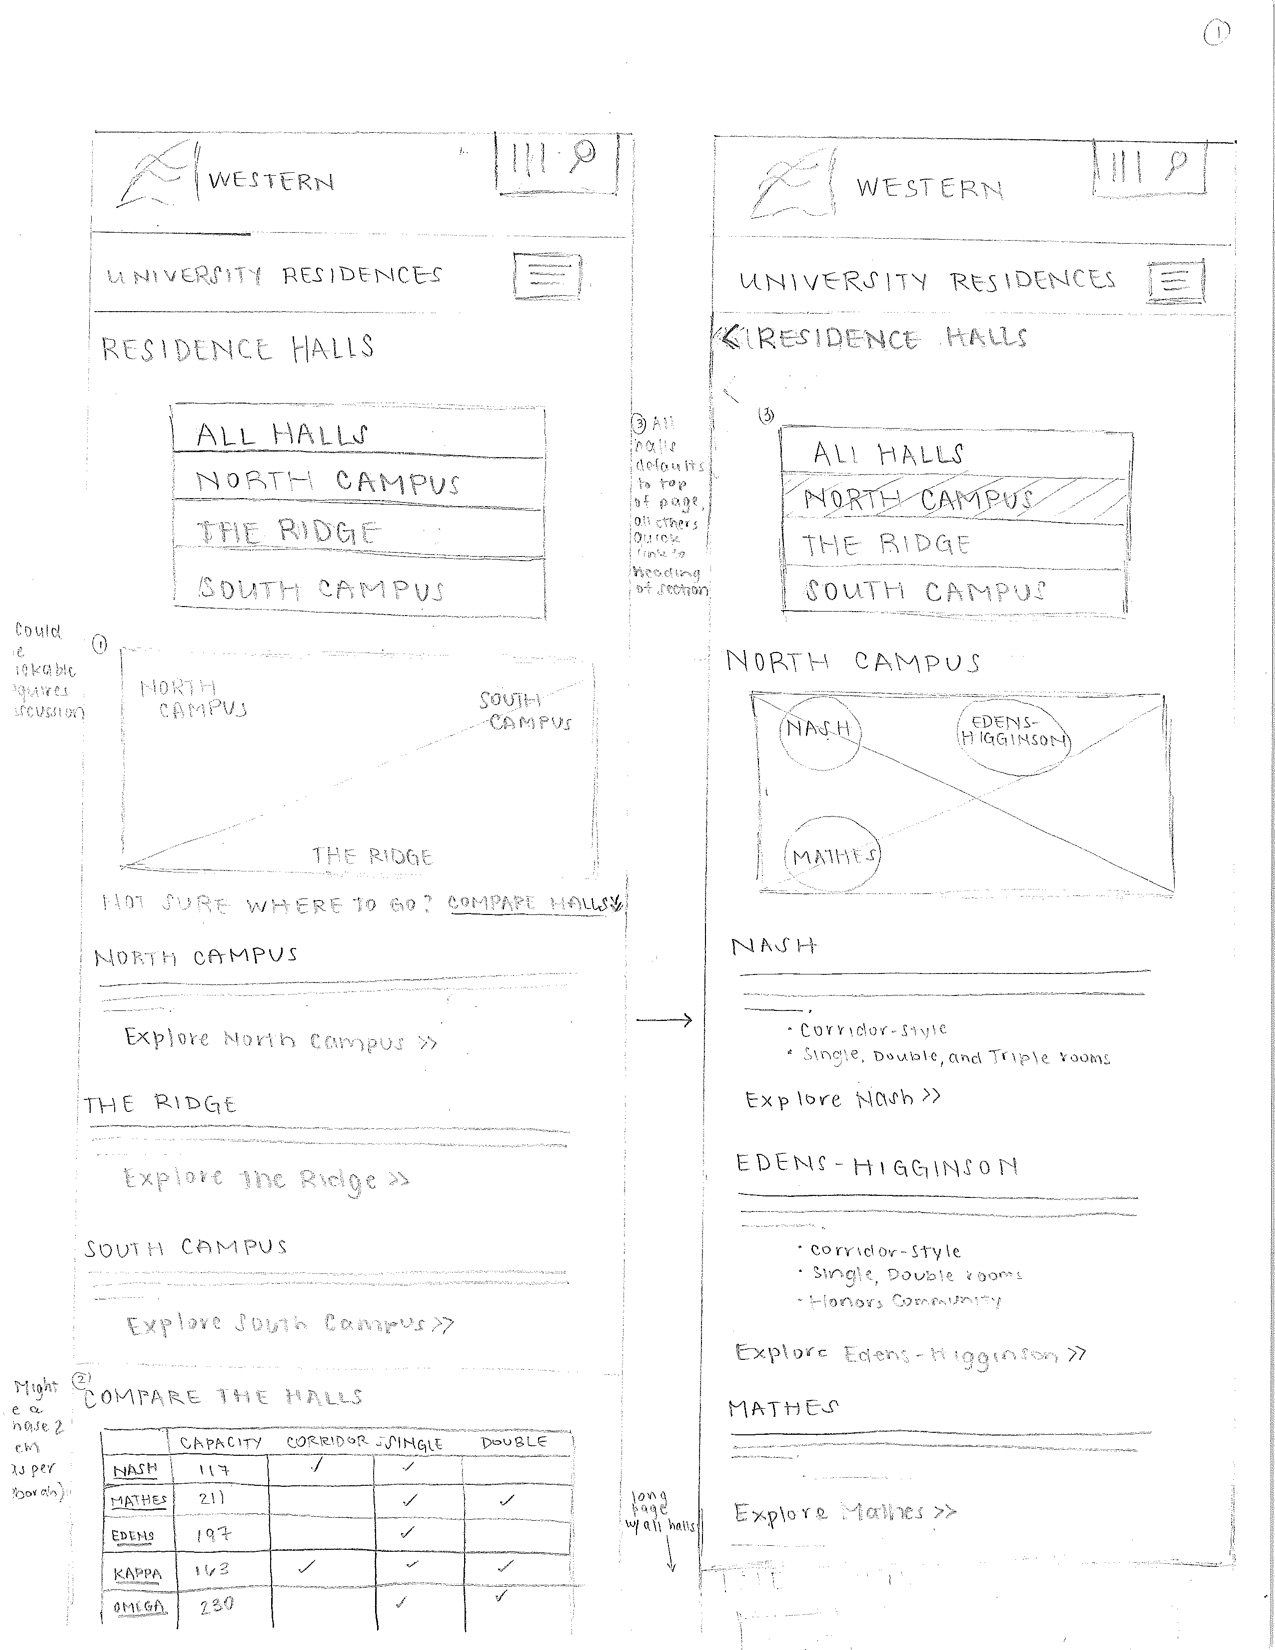 1
WESTERN
UNIVERSITY RESIDENCES
RESIDENCE HALLS
ALL HALLS
NORTH CAMPUS
THE RIDGE
SOUTH CAMPUS
Could
ickable
quires
scussion
1
NORTH
CAMPUS
SOUTH
CAMPUS
THE RIDGE
NOT SURE WHERE TO GO? COMPARE HALLS
NORTH CAMPUS
Explore North Campus >>
THE RIDGE
Explore The Ridge >>
SOUTH CAMPUS
Explore South Campus >>
Might
e a
hase 2
as per
2
COMPARE THE HALLS
CAPACITY CORRIDOR SINGLE DOUBLE
NASH 117 ✓ ✓
MATHES 211 ✓ ✓
EDENS 197 ✓
KAPPA 163 ✓ ✓ ✓
OMEGA 230 ✓ ✓
3 All
halls
defaults
to top
of page,
all others
quick
link to
heading
of section
long
page
w/ all halls
WESTERN
UNIVERSITY RESIDENCES
< RESIDENCE HALLS
3
ALL HALLS
NORTH CAMPUS
THE RIDGE
SOUTH CAMPUS
NORTH CAMPUS
NASH
EDENS-
HIGGINSON
MATHES
NASH
• Corridor-Style
• Single, Double, and Triple rooms
Explore Nash >>
EDENS-HIGGINSON
• Corridor-Style
• Single, Double rooms
• Honors Community
Explore Edens-Higginson >>
MATHES
Explore Mathes >>